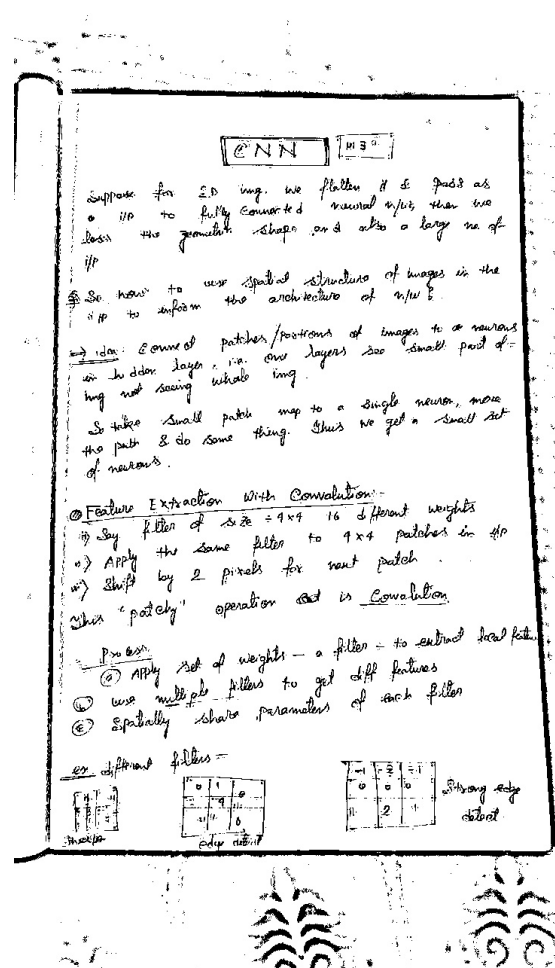 CNN
Suppose for 2D img. we flatten it & pass as
a i/p to fully connected neural n/w, then we
loss the geometric shape and also a large no of
i/p
So how to use spatial structure of images in the
i/p to inform the architecture of n/w ?
=> idea: Connect patches/portions of images to a neurons
in hidden layer, i.e. one layers see small part of
img not seeing whole img.
So take small patch map to a single neuron, move
the path & do same thing. Thus we get a small set
of neurons.
Feature Extraction With Convolution:-
i) Say filter of size ÷ 4x4 16 different weights
ii) Apply the same filter to 4x4 patches in i/p
iii) Shift by 2 pixels for next patch.
This "patchy" operation is Convolution
Process
(a) Apply set of weights - a filter ÷ to extract local feature
(b) use multiple filters to get diff features
(c) Spatially share parameters of each filter
ex different filters -
0 1 0
0 0 0
2
Strong edge
detect.
edge detect